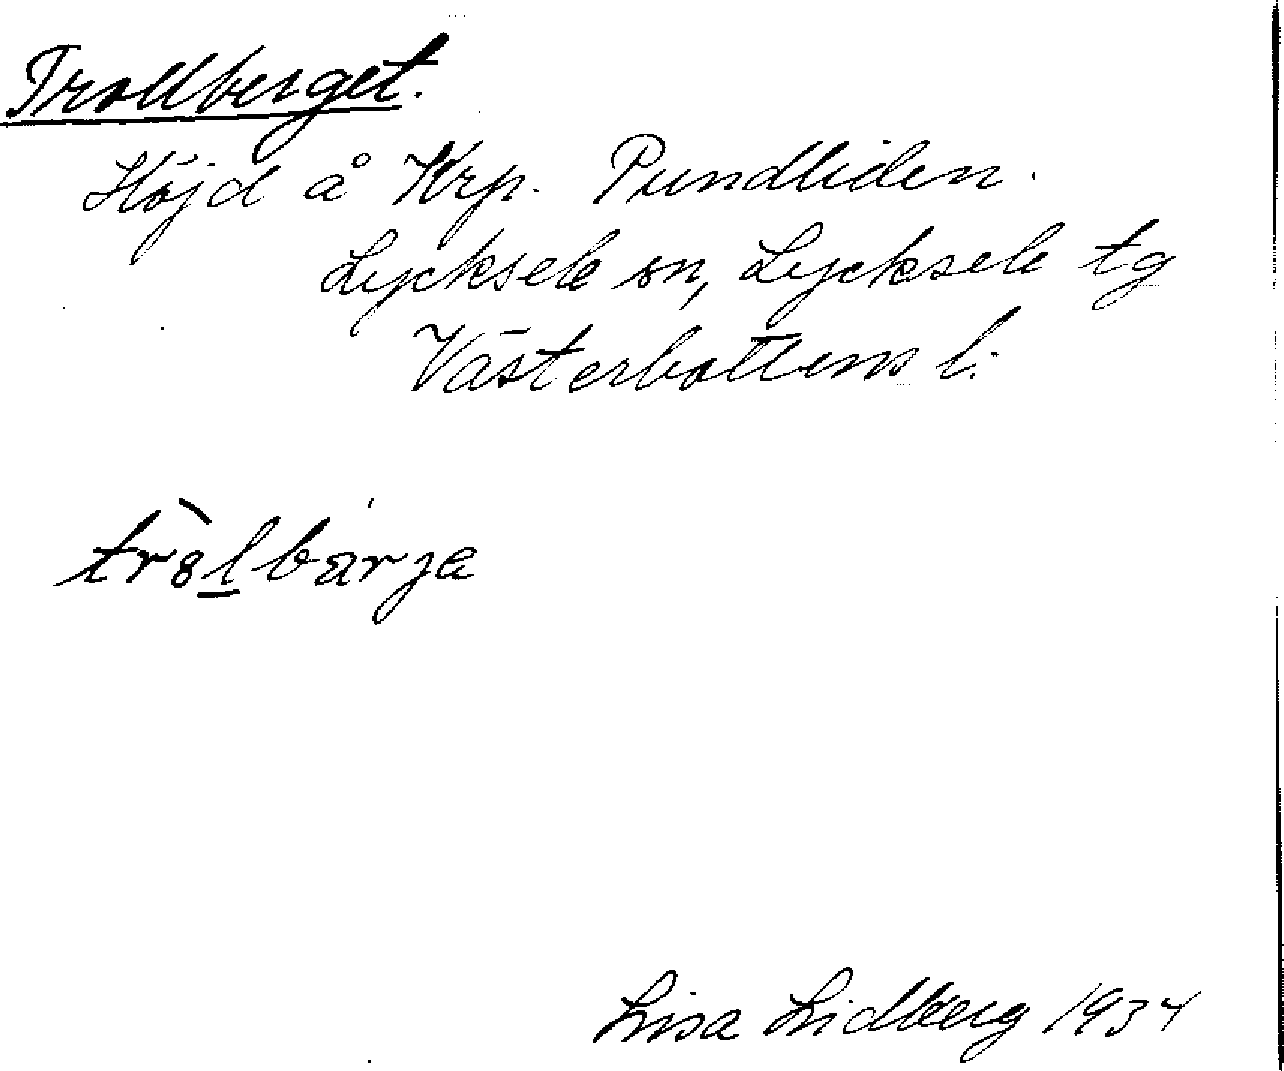 Trollberget.
Höjd å Krp. Pundliden.
Lycksele sn, Lycksele tg
Västerbottens l.
Lisa Lidberg 1934